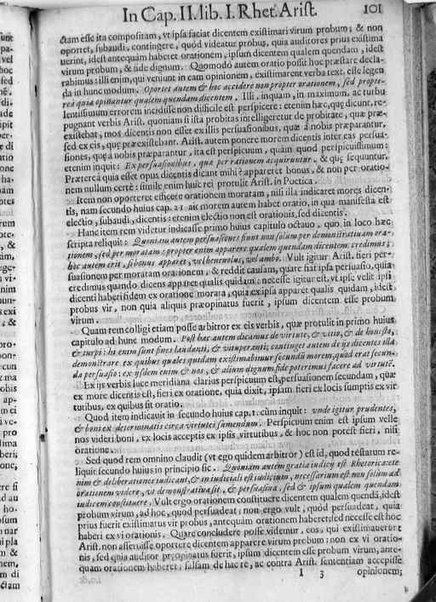 In Cap. II. lib. I. Rhet. Arist. 101
ctam esse ita compositam, vt ipsa faciat dicentem existimari virum probum; & non
oportet, subaudi, contingere, quod videatur probus, quia auditores prius existima
uerint, idest antequam haberet orationem, ipsum dicentem qualem quendam, idest
virum probum, & fide dignum. Quomodo autem oratio possit hoc præstare decla-
rabimus illi enim, qui veniunt in eam opinionem, existimarent verba text. esse legen
da in hunc modum. Oportet autem & hoc accidere non propter orationem, sed propte-
rea quia opinantur qualem quendam dicentem. Illi, inquam, in maximum, ac turbu
lentissimum errorem incidisse non difficile est perspicere: etenim hæc, quæ dicunt, re-
pugnant verbis Arist. quoniam si ista probitas intelligeretur de probitate, quæ præ-
existebat, mos dicentis non esset ex illis persuasionibus, quæ a nobis præparantur,
sed ex eis, quæ præexistebant. Arist. autem ponere morem dicentis inter eas persua-
siones, quæ a nobis præparantur, ita est perspicuum, quam quod perspicuissimum:
etenim inquit: Ex persuasionibus, quæ per rationem acquiruntur, & quæ sequuntur.
Præterea quia esset opus dicentis dicant mihi? appareret bonus, & non per oratio-
nem nullum certe: simile enim huic rei protulit Arist. in Poetica.
Item non oporteret efficere orationem moratam, nisi illa indicaret mores dicen-
tis, nam secundo huius cap. 21 ait morem autem habet oratio, in qua manifesta est
electio, subaudi, dicentis: etenim electio non est orationis, sed dicentis.
Hanc item rem videtur indicasse primo huius capitulo octauo, quo in loco hæc
scripta reliquit:
suasionem per moratam orationem, & reddit causam, quare fiat ipsa persuasio, quia
credimus quando dicens apparet qualis quidam: necesse igitur est, vt ipse velit ipsi
dicenti haberi fidem ex oratione morata, quia ex ipsa apparet qualis quidam, idest
probus vir, non quia aliquis præopinatus fuerit, ipsum dicentem esse probum
virum.
Quam rem colligi etiam posse arbitror ex eis verbis, quæ protulit in primo huius
capitulo ad hunc modum. Post hæc autem dicamus de virtute, & vitio, & de honesto,
& turpi: hi enim sunt fines laudanti, & vituperanti: continget autem de ijs dicentes illa
demonstrare ex quibus quales quidam existimabimur secundum morem, quod erat secun-
da persuasio: ex ijsdem enim & nos, & alium dignum fide poterimus facere ad virtutē.
Ex ijs verbis luce meridiana clarius perspicuum est, persuasionem secundam, quæ
ex more dicentis est, fieri ex oratione, quia dixit, ipsam fieri ex locis sumptis ex vir
tutibus, ex quibus sit oratio.
Quod item indicauit in secundo huius cap. 1. cùm inquit: vnde igitur prudentes,
& boni ex determinatis circa virtutes sumendum. Perspicuum enim est ipsum velle
nos videri boni, ex locis acceptis ex ipsis virtutibus, & hoc non potest fieri, nisi
oratione.
Sed quod rem omnino claudit (vt ego quidem arbitror) est id, quod testatum re-
liquit secundo huius in principio sic. Quoniam autem gratia iudicij est Rhetorica: ete-
nim & deliberationes iudicant, & in iudicium est iudicium, necessarium est non solum ad
orationem videre, vt demonstratiua sit, & persuasoria, sed & ipsum qualem quendam
iudicem constituere. Vult ergo orationem constituere dicentem qualem quendā, idest
probum virum, ad hoc, quod persuadeat: non ergo vult, quod persuadeat, quia
prius fuerit existimatus vir probus, antequam orationem haberet: sed necesse est hoc
haberi ex vi orationis. Quare concludere posse videntur, eos, qui existimauere
Arist. non asseruisse oportere dicentem apparere virum probum: non ex vi oratio-
nis, sed quia auditor præopinatus fuerit, ipsum dicentem esse probum virum, ante-
quam orationem haberet: falsam de hac re, ac contra Arist. sententiam accepisse
I 3 opinionem;